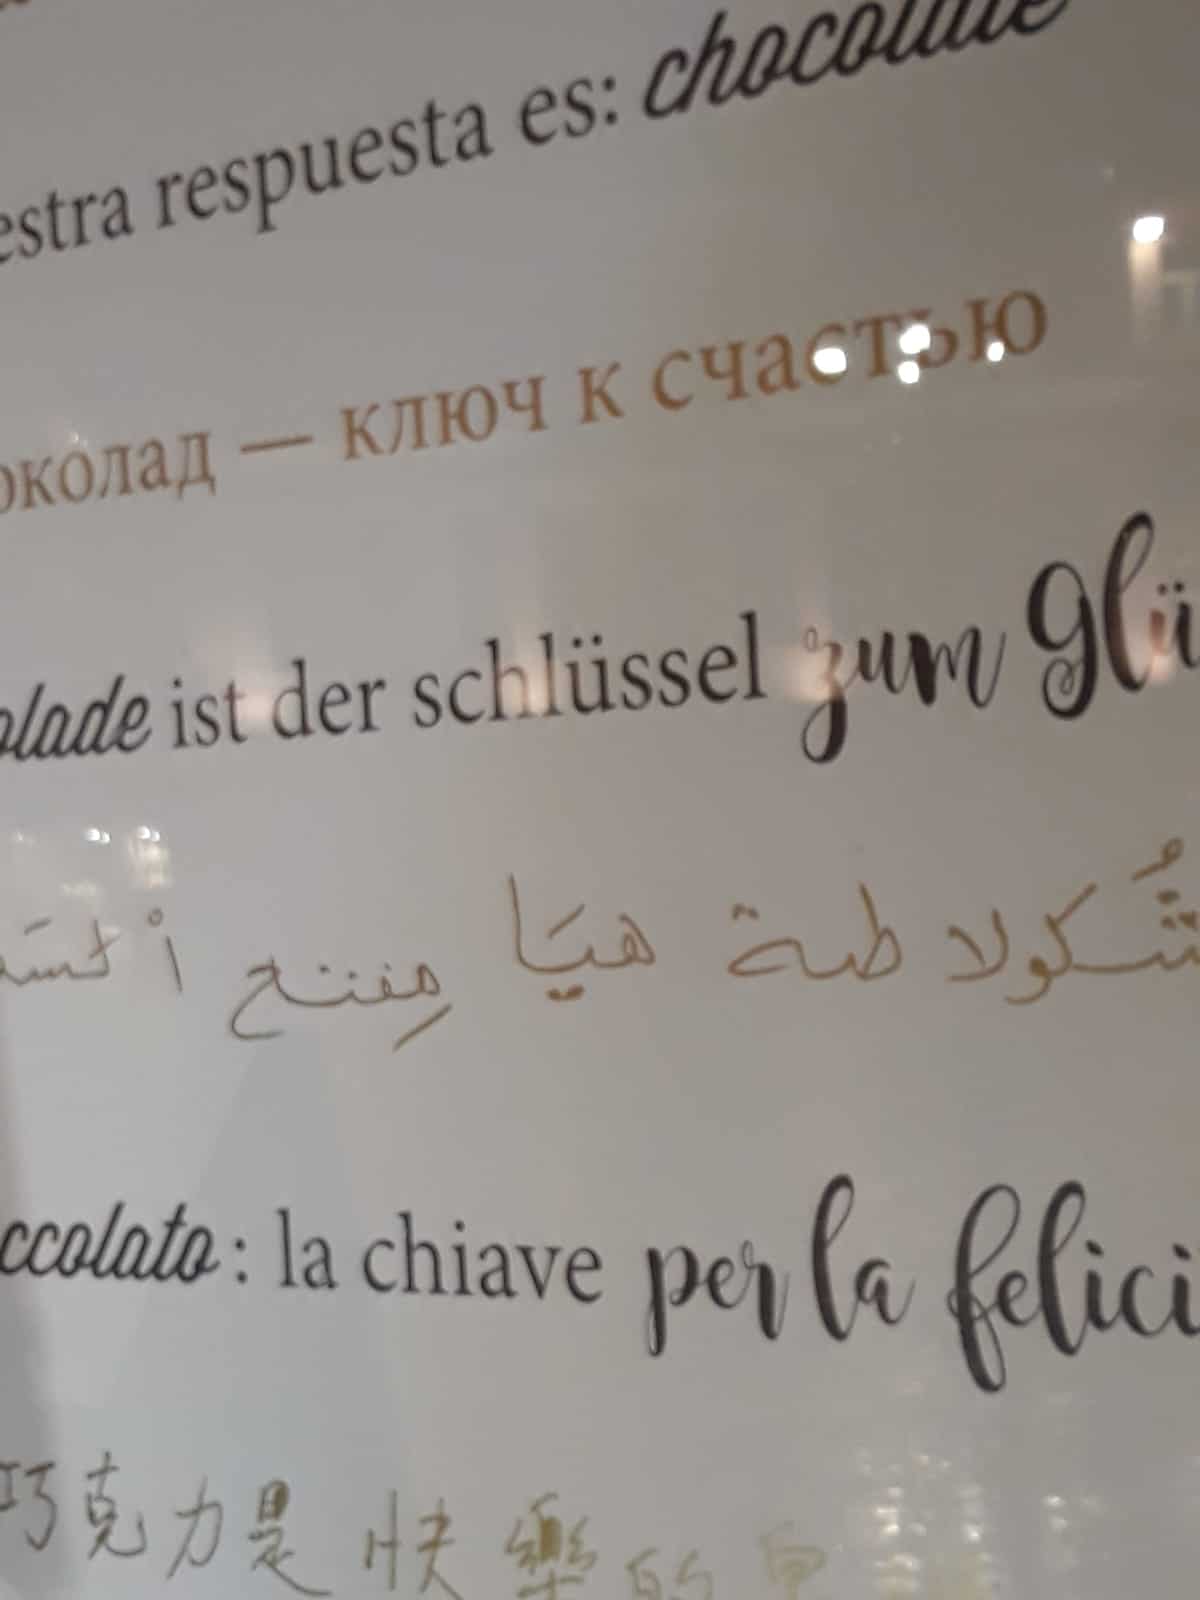 estra respuesta es: chocolate
околад — ключ к счастью
olade ist der schlüssel zum glü
شُكولا طة هيَا مِفتح أ لسَع
ccolato : la chiave per la felici
巧克力是快樂的